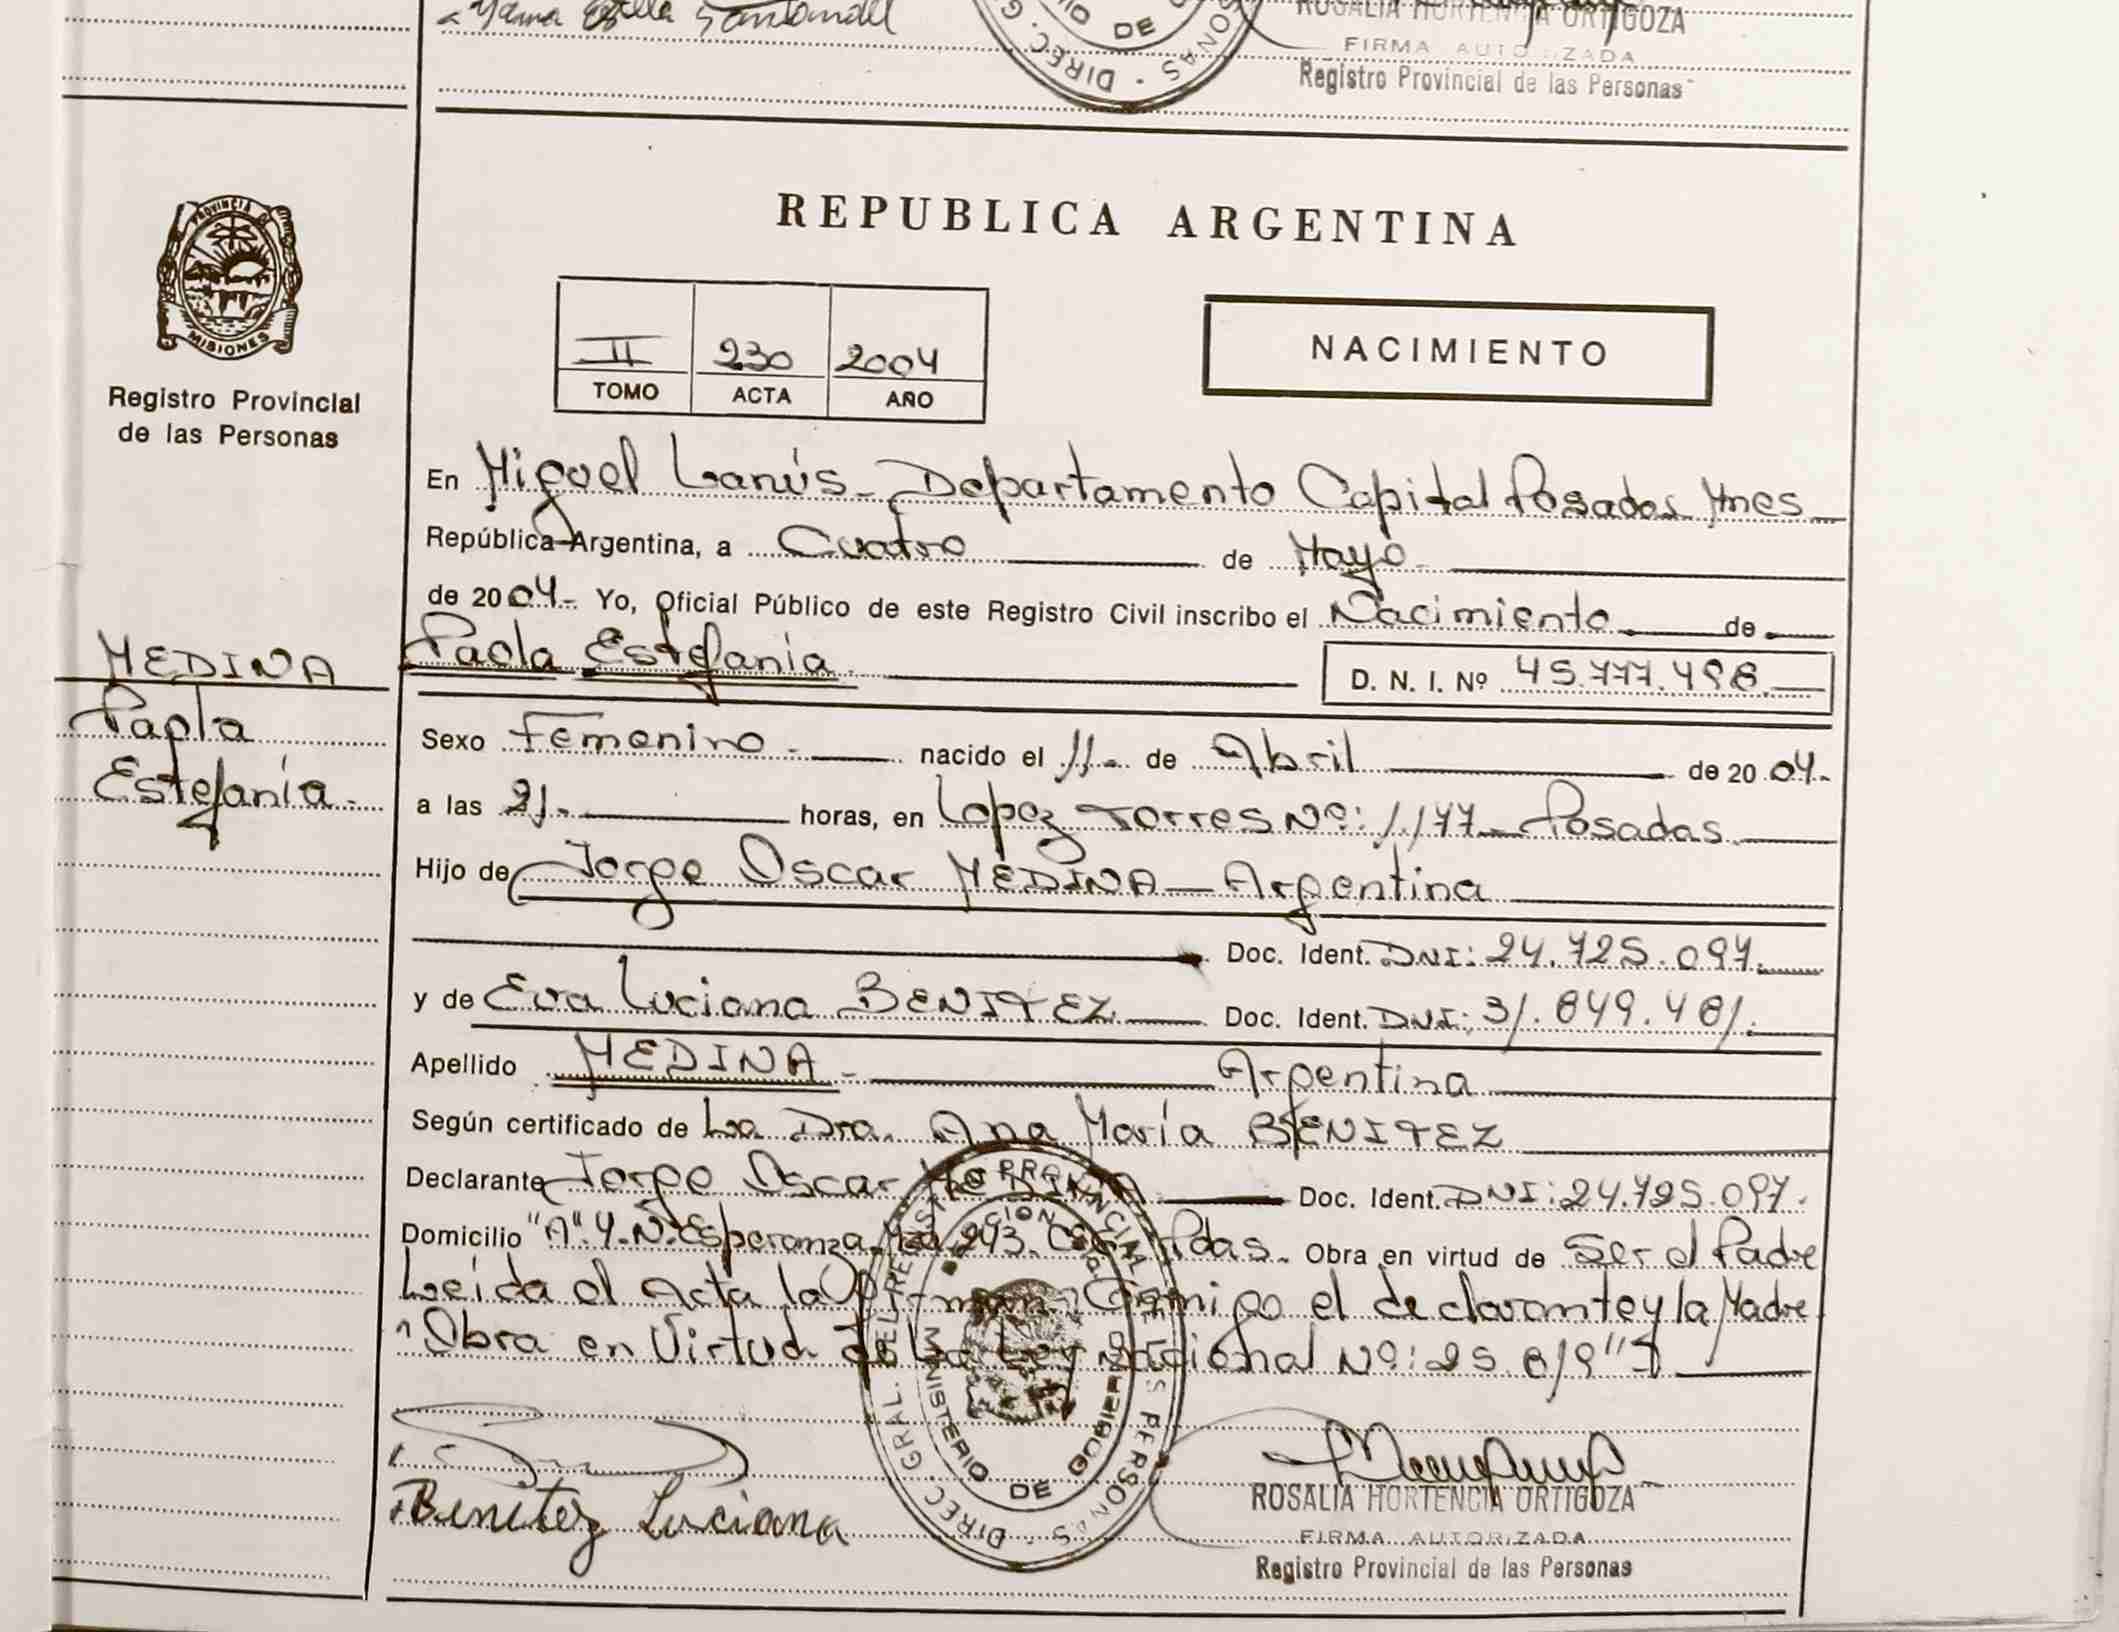 ROSALIA HORTENCIA ORTIGOZA
FIRMA AUTORIZADA
Registro Provincial de las Personas
DIREC.
DE
PROVINCIA DE
MISIONES
Registro Provincial
de las Personas
REPUBLICA ARGENTINA
II 230 2004
TOMO ACTA AÑO
NACIMIENTO
En Miguel Lanús - Departamento Capital Posadas Mnes
República Argentina, a Cuatro de Mayo
de 2004.- Yo, Oficial Público de este Registro Civil inscribo el Nacimiento de
Paola Estefanía. D. N. I. Nº 45.777.498
MEDINA
Paola
Estefanía.
Sexo Femenino.- nacido el 11.- de Abril de 2004.
a las 21.- horas, en Lopez Torres Nº: 1.177 - Posadas
Hijo de Jorge Oscar MEDINA - Argentina
Doc. Ident. DNI: 24.725.097.
y de Eva Luciana BENITEZ Doc. Ident. DNI: 31.849.481.
Apellido MEDINA - Argentina
Según certificado de La Dra. Ana María BENITEZ
Declarante Jorge Oscar MEDINA Doc. Ident. DNI: 24.725.097.
Domicilio "A" 4. N. Esperanza Mza 243. Pdas. Obra en virtud de Ser el Padre
Leída el Acta la firman Conmigo el declarante y la Madre
"Obra en Virtud de la Ley Nacional Nº: 25.819"
DIREC. GRAL. DEL REGISTRO PROVINCIAL DE LAS PERSONAS
MINISTERIO DE GOBIERNO
Benitez Luciana
ROSALIA HORTENCIA ORTIGOZA
FIRMA AUTORIZADA
Registro Provincial de las Personas